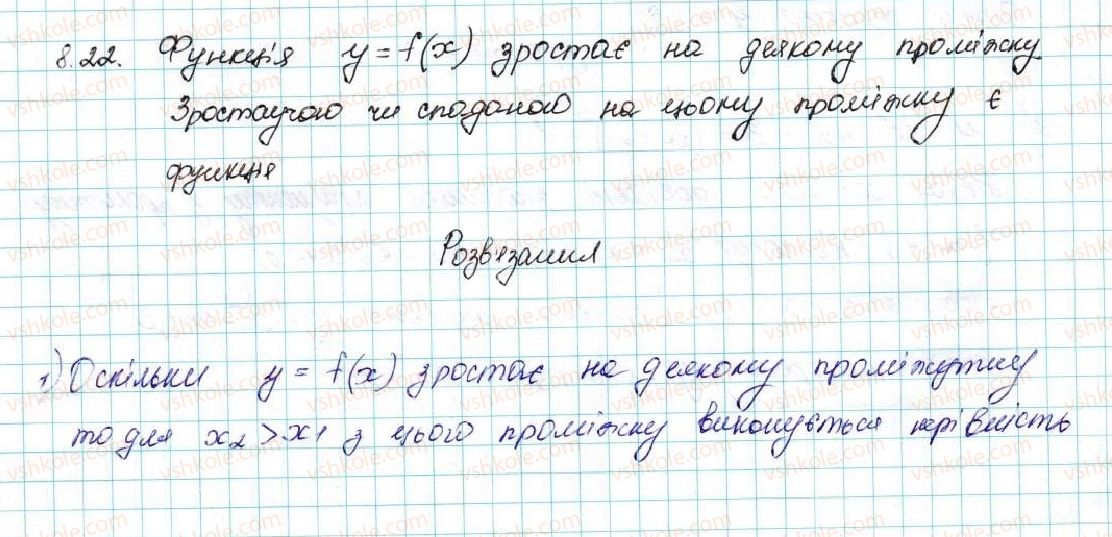 8.22. Функція y = f(x) зростає на деякому проміжку
Зростаучою чи спаданою на цьому проміжку є
функція
Розв'язання
1) Оскільки y = f(x) зростає на деякому проміжутку
то для x₂ > x₁ з цього проміжку виконується нерівність